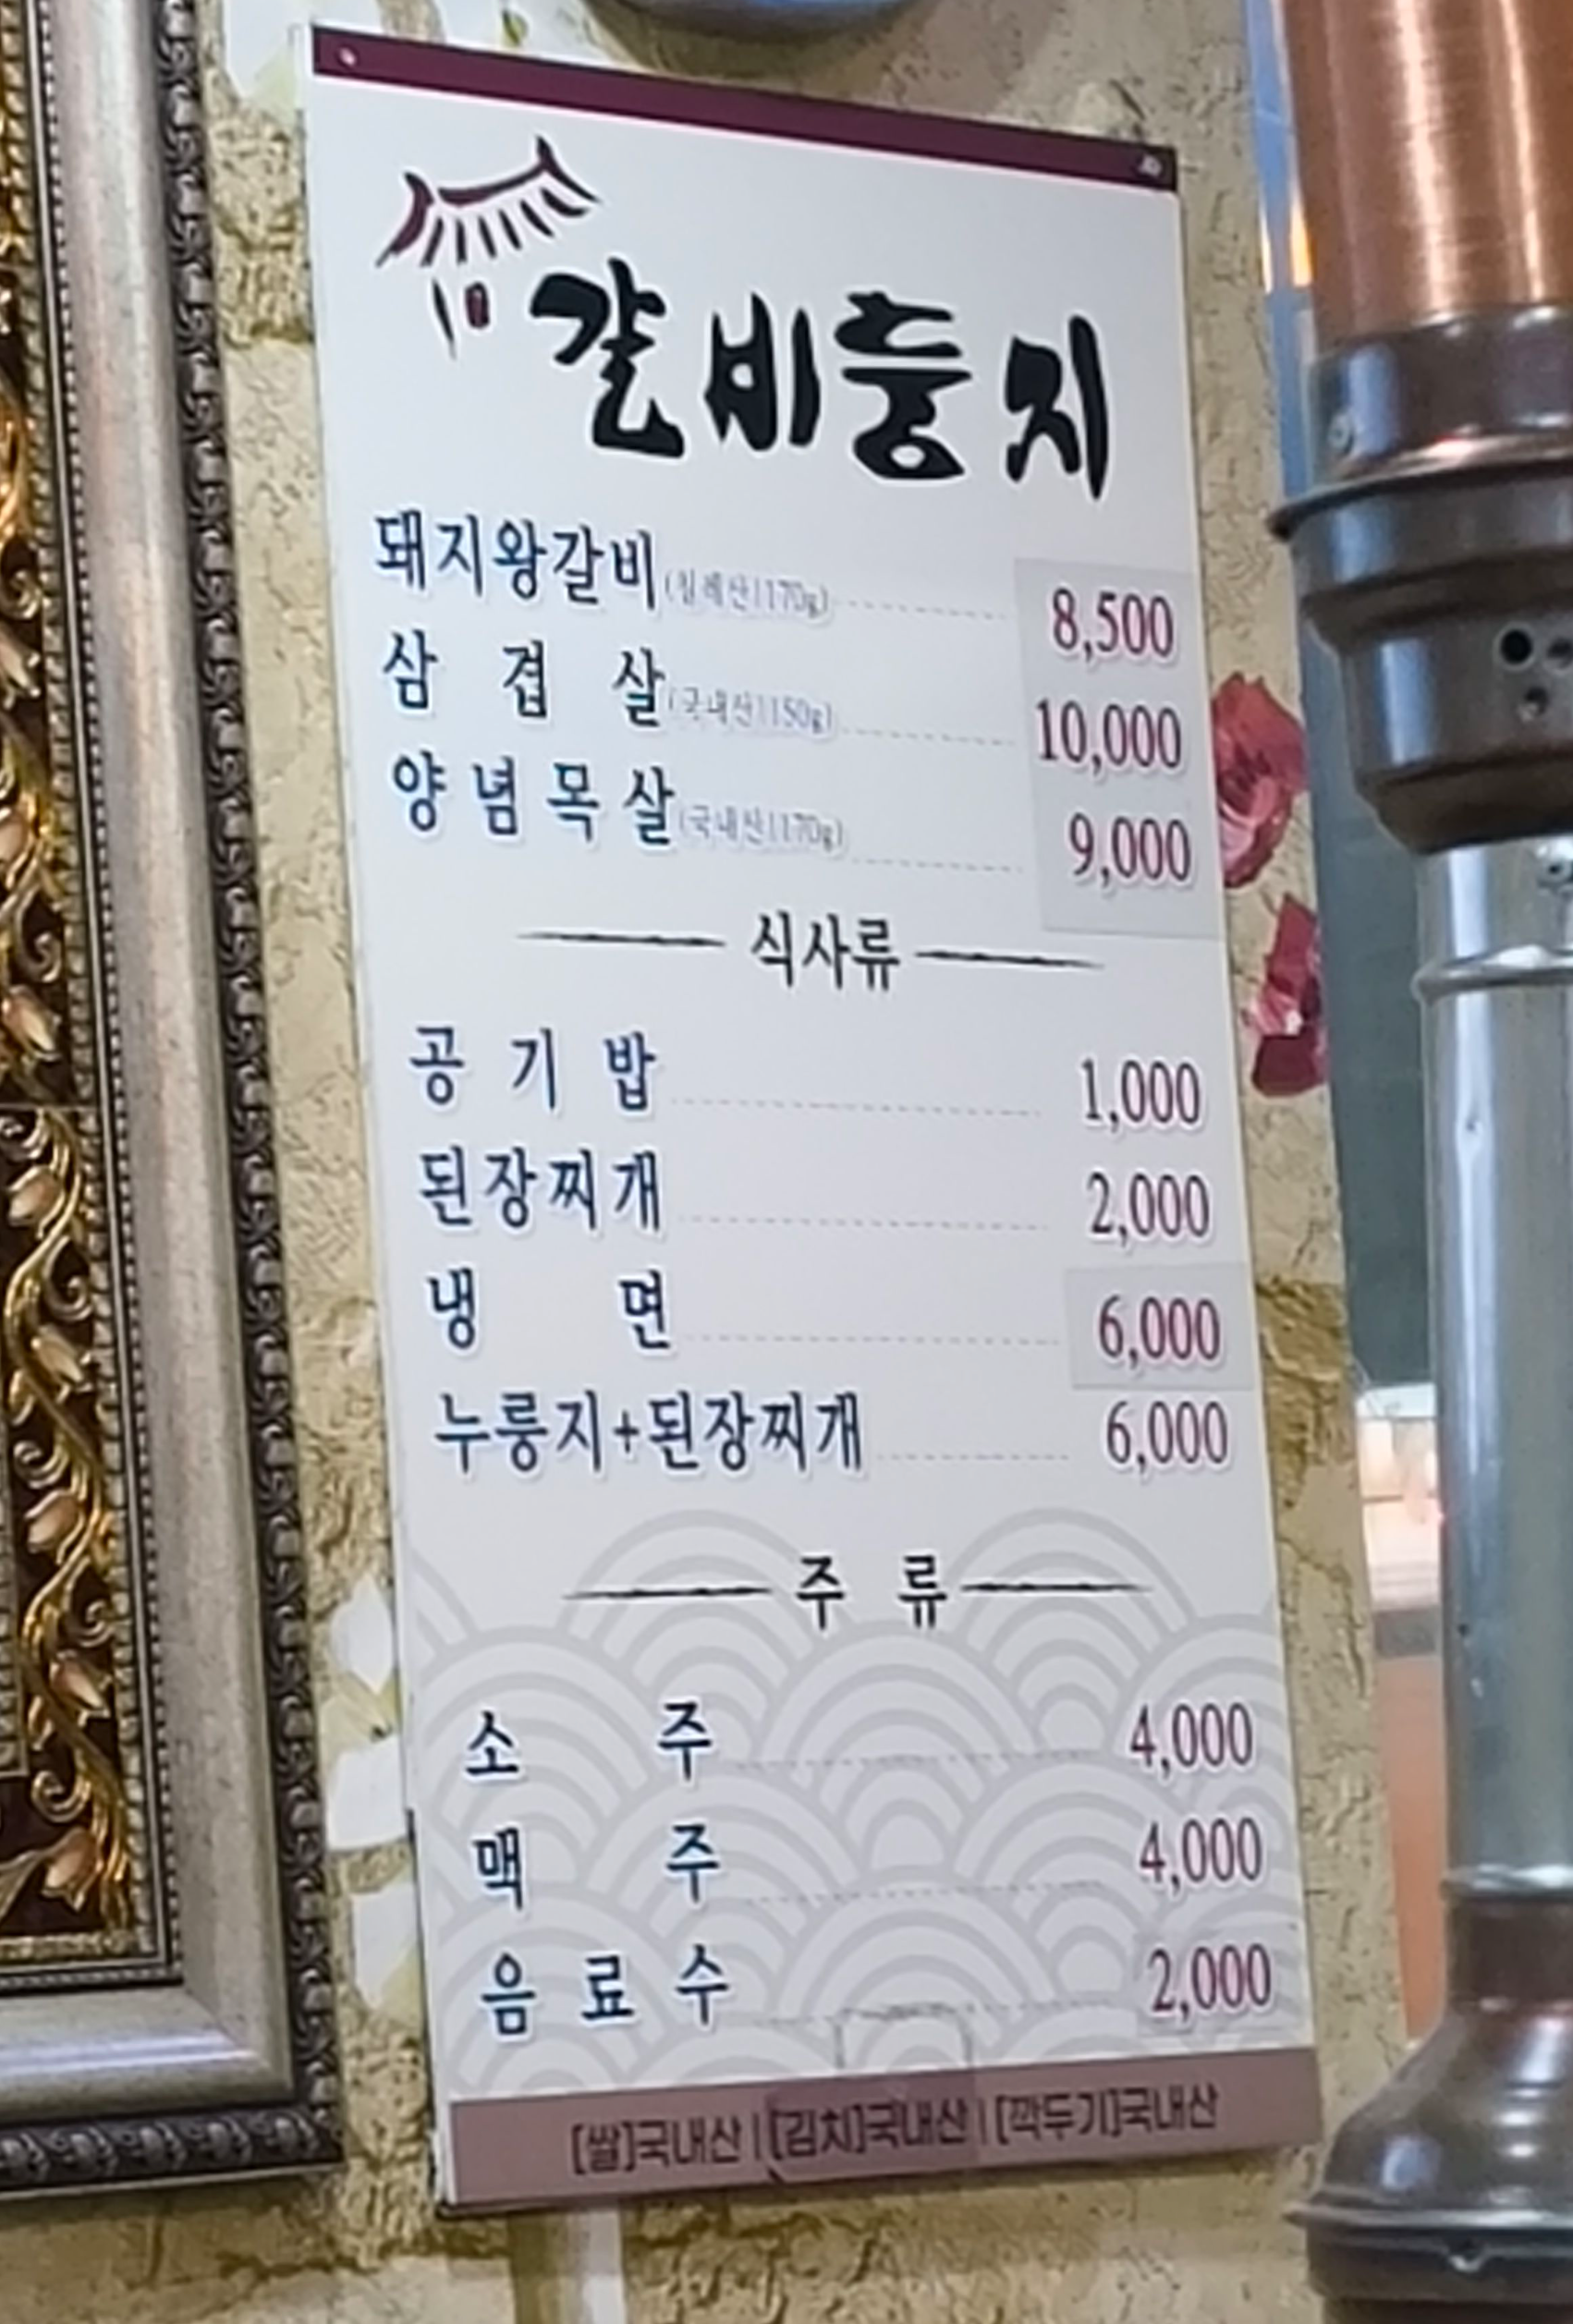 갈비둥지
돼지왕갈비(칠레산170g) 8,500
삼겹살(국내산150g) 10,000
양념목살(국내산170g) 9,000
식사류
공기밥 1,000
된장찌개 2,000
냉면 6,000
누룽지+된장찌개 6,000
주류
소주 4,000
맥주 4,000
음료수 2,000
[쌀]국내산 | [김치]국내산 | [깍두기]국내산